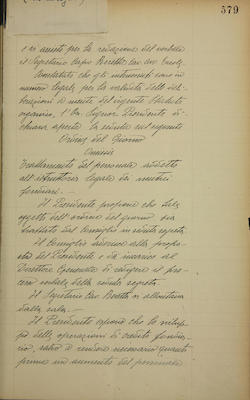 579
e vi assiste per la redazione del verbale
il Segretario Capo Beretta Cav. Avv.
Constatato che gli intervenuti sono in
numero legale per la validità delle deli-
berazioni a mente del vigente Statuto
organico, l'On. Signor Presidente di-
chiara aperta la seduta col seguente
Ordine del Giorno
Omissis
Trattamento del personale addetto
all'istruttoria legale dei mutui
fondiari. —
Il Presidente propone che tale
oggetto dell'ordine del giorno sia
trattato dal Consiglio in seduta segreta.
Il Consiglio aderisce alla propo-
sta del Presidente e dà incarico al
Direttore di redigere il pro-
cesso verbale della seduta segreta.
Il Segretario Cav. Beretta si allontana
dalla sala. —
Il Presidente espone che lo svilup-
po delle operazioni di credito fondia-
rio, rese necessario quanto
prima un aumento del personale